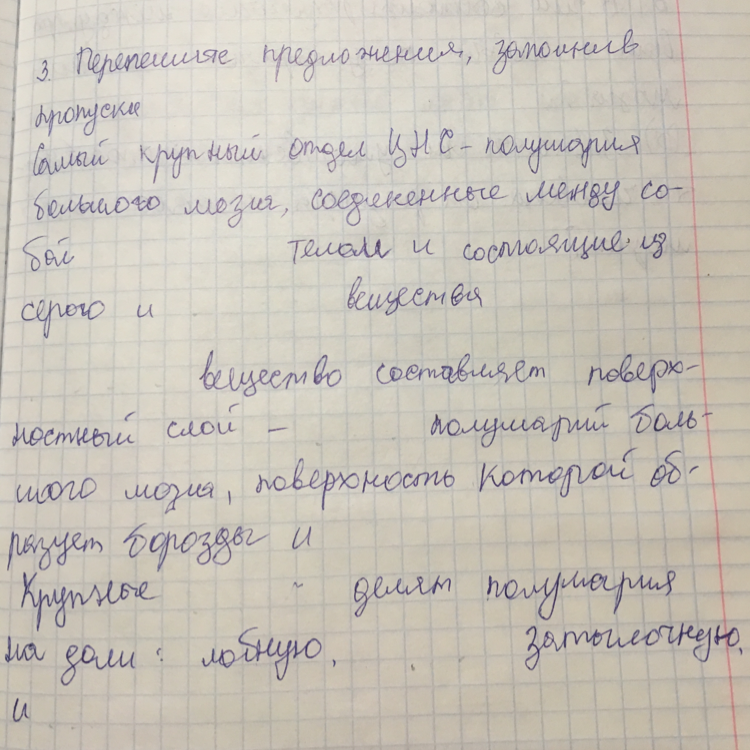 3. Перепешите предложения, заполнив
пропуски
Самый крупный отдел ЦНС - полушария
большого мозга, соединенные между со-
бой телом и состоящие из
серого и вещества
вещество составляет поверх-
ностный слой - полушарий боль-
шого мозга, поверхность которой об-
разует борозды и
Крупные делят полушария
на доли: лобную, затылочную,
и